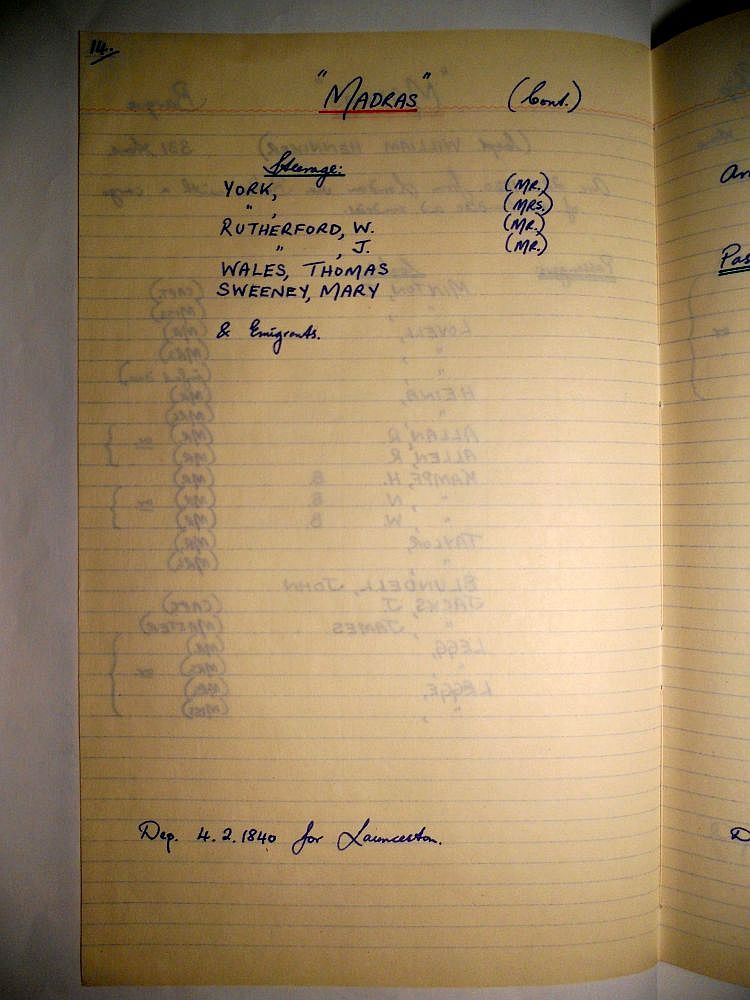 14.
"MADRAS" (Cont.)
Steerage:
YORK, (MR.)
" , (MRS.)
RUTHERFORD, W. (MR.)
" , J. (MR.)
WALES, THOMAS
SWEENEY, MARY
& Emigrants.
Dep. 4.2.1840 for Launceston.